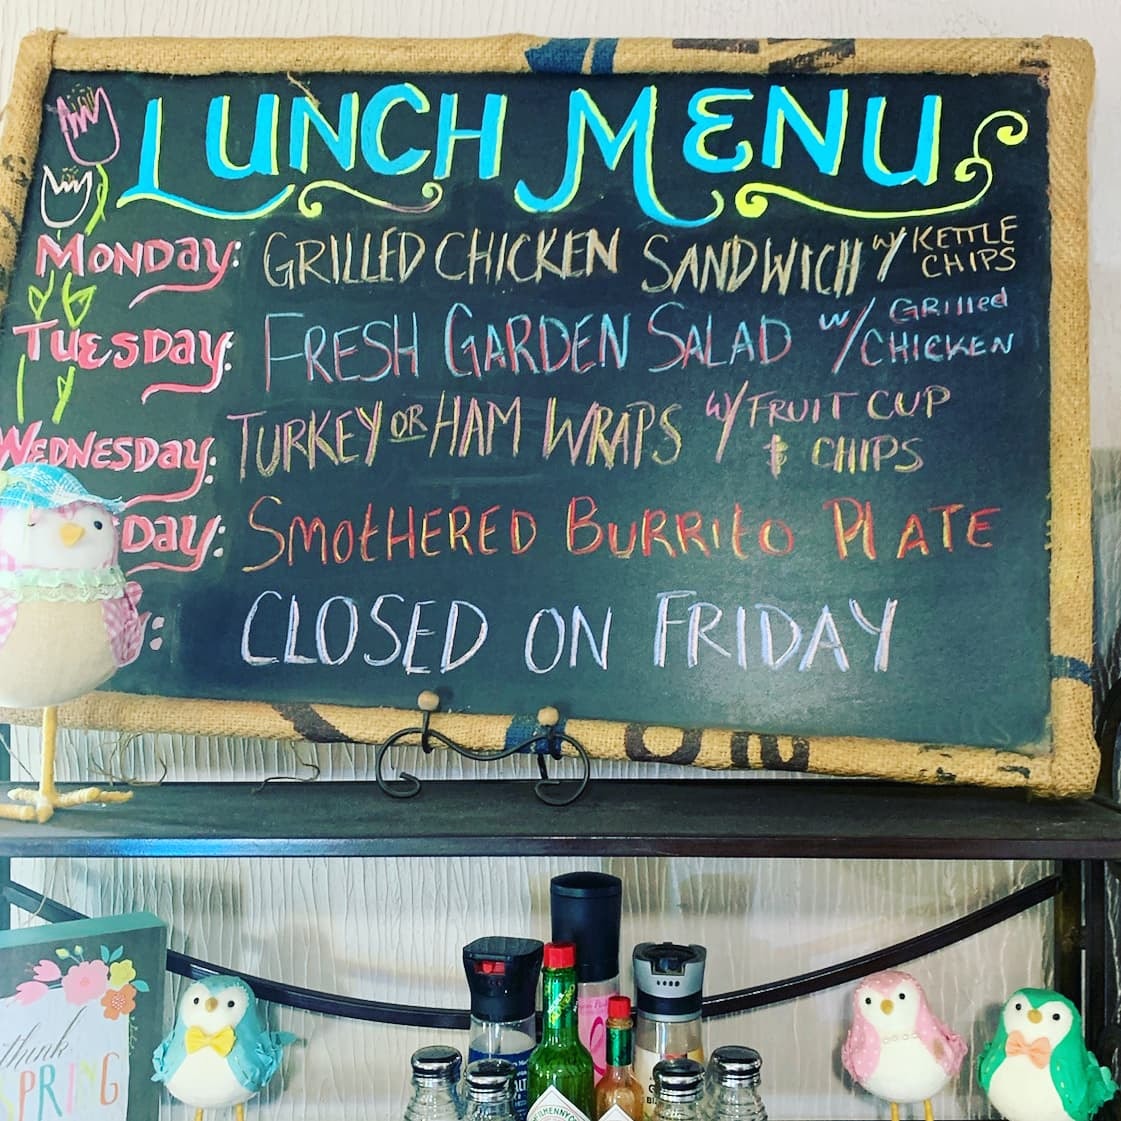 LUNCH MENU
MONDAY: GRILLED CHICKEN SANDWICH W/ KETTLE CHIPS
TUESDAY: FRESH GARDEN SALAD W/ GRILLED CHICKEN
WEDNESDAY: TURKEY OR HAM WRAPS W/ FRUIT CUP & CHIPS
DAY: SMOTHERED BURRITO PLATE
: CLOSED ON FRIDAY
think
SPRING